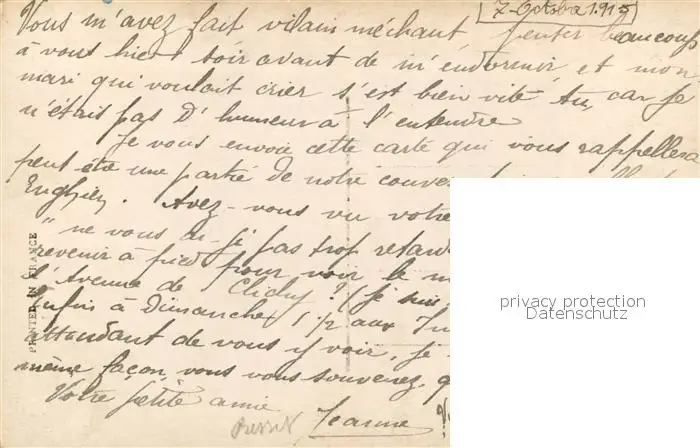 7 - Octobre 1915
Vous m'avez fait vilain méchant, penser beaucoup
à vous hier soir avant de m'endormir, et mon
mari qui voulait crier s'est bien vite tu, car je
n'étais pas d'humeur à l'entendre
Je vous envoie cette carte qui vous rappellera
peut être une partie de notre
Enghien. Avez-vous vu votre
"ne vous ai-je pas trop retard
revenir à pied pour voir le m
l'Avenue de Clichy? Je suis
Enfin à Dimanche, 1/2 aux
attendant de vous y voir, je
même façon, vous vous souvenez, q
Votre petite amie
Jeanne
PRINTED IN FRANCE
privacy protection
Datenschutz